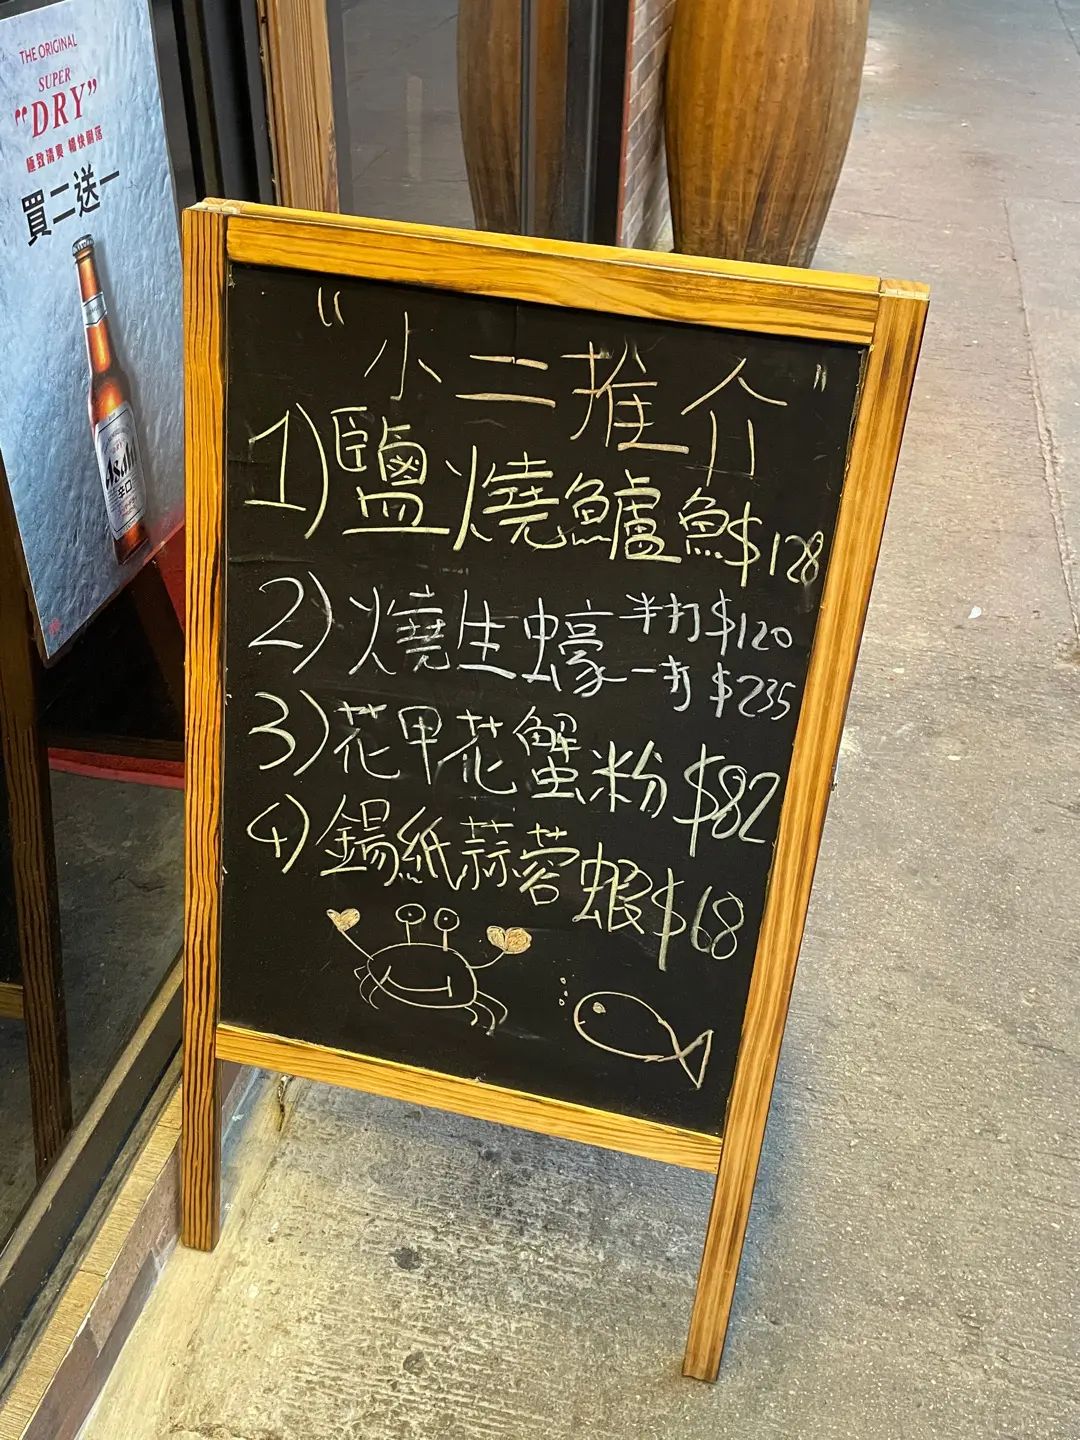 THE ORIGINAL
SUPER
"DRY"
極致清爽 暢快俐落
買二送一
Asahi
辛口
"小二推介"
1) 鹽燒鱸魚 $128
2) 燒生蠔 半打 $120
一打 $235
3) 花甲花蟹粉 $82
4) 錫紙蒜蓉蝦 $68